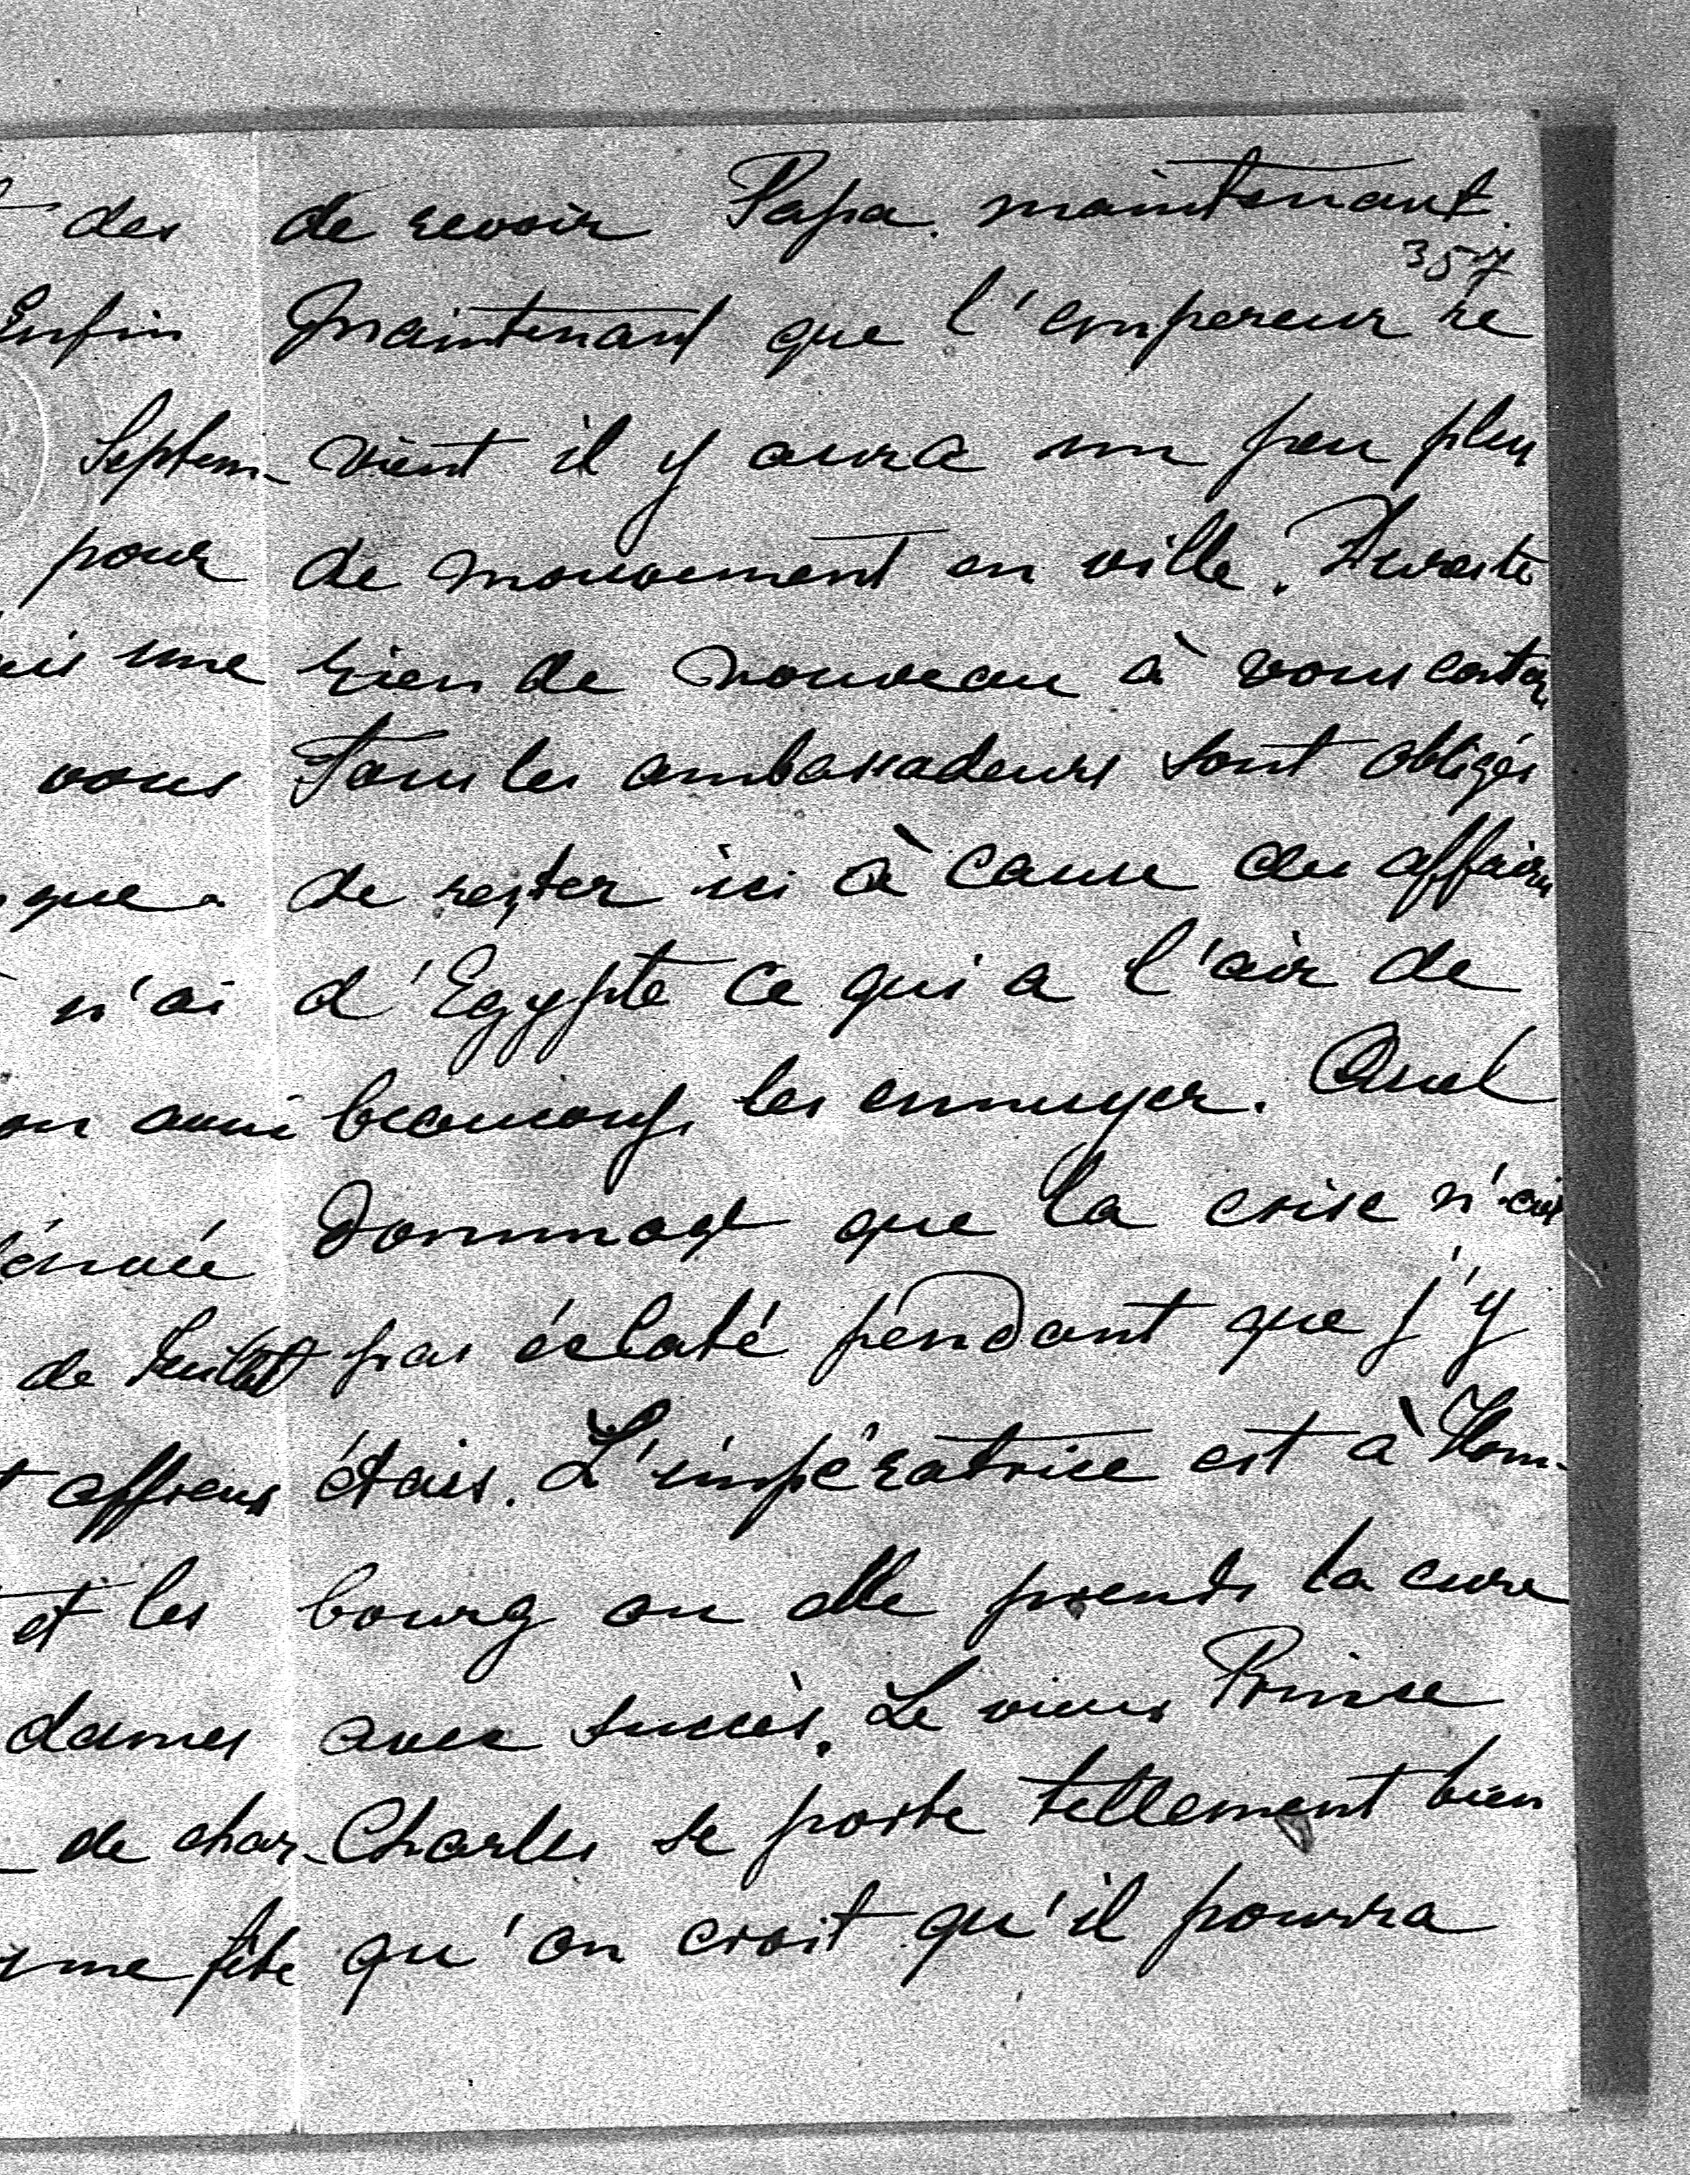 des
Enfin
Septem-
pour
une
vous
que
n'ai
on aussi
de Juillet
affreux
et les
dames
de char-
une fête
de revoir Papa. maintenant.
357
Maintenant que l'empereur re
vient il y aura un peu plus
de mouvement en ville. Dureste
rien de nouveau à vous conter
Tous les ambassadeurs sont obligés
de rester ici à cause des affaires
d'Egypte ce qui a l'air de
beaucoup les ennuyer. Quel
dommage que la crise n'ait
pas éclaté pendant que j'y
étais. L'impératrice est à Hom-
bourg ou elle prends la cure
avec succès. Le vieux Prince
Charles se porte tellement bien
qu'on croit qu'il pourra